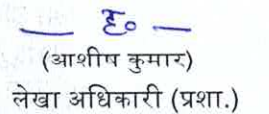 — ह० —
(आशीष कुमार)
लेखा अधिकारी (प्रशा.)